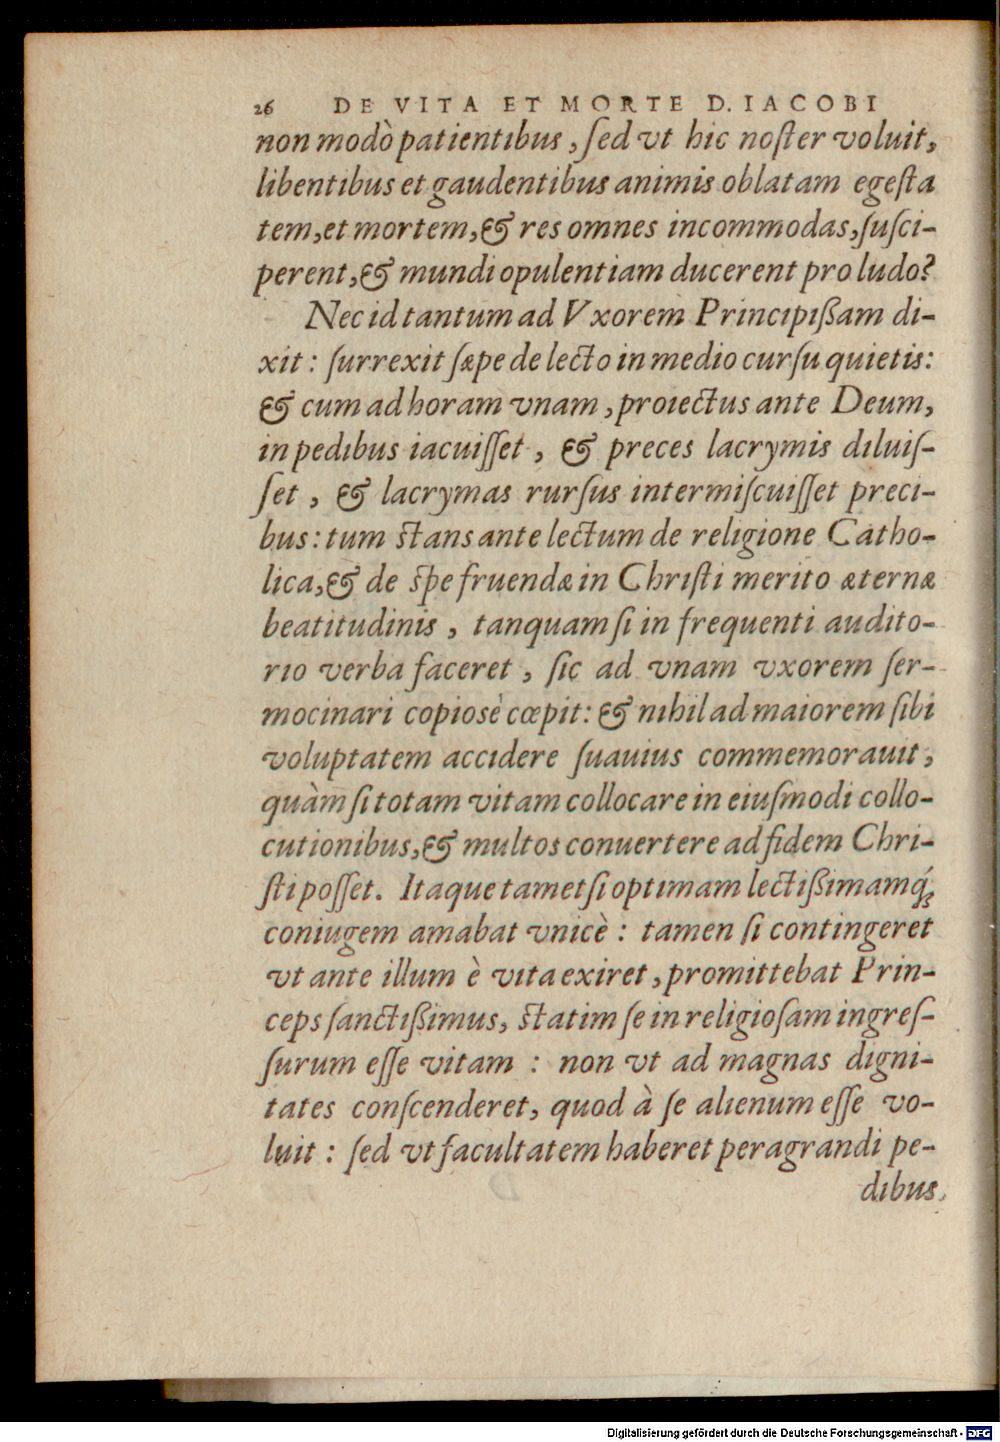 26 DE VITA ET MORTE D. IACOBI
non modò patientibus, ſed vt hic noſter voluit,
libentibus et gaudentibus animis oblatam egeſta
tem, et mortem, & res omnes incommodas, ſuſci-
perent, & mundi opulentiam ducerent pro ludo?
Nec id tantum ad Vxorem Principißam di-
xit: ſurrexit ſæpe de lecto in medio curſu quietis:
& cum ad horam vnam, proiectus ante Deum,
in pedibus iacuiſſet, & preces lacrymis diluiſ-
ſet, & lacrymas rurſus intermiſcuiſſet preci-
bus: tum ſtans ante lectum de religione Catho-
lica, & de ſpe fruendæ in Chriſti merito æternæ
beatitudinis, tanquam ſi in frequenti audito-
rio verba faceret, ſic ad vnam vxorem ſer-
mocinari copiosè cœpit: & nihil ad maiorem ſibi
voluptatem accidere ſuauius commemorauit,
quàm ſi totam vitam collocare in eiuſmodi collo-
cutionibus, & multos conuertere ad fidem Chri-
ſti poſſet. Itaque tametſi optimam lectißimamq́;
coniugem amabat vnicè: tamen ſi contingeret
vt ante illum è vita exiret, promittebat Prin-
ceps ſanctißimus, ſtatim ſe in religioſam ingreſ-
ſurum eſſe vitam: non vt ad magnas digni-
tates conſcenderet, quod à ſe alienum eſſe vo-
luit: ſed vt facultatem haberet peragrandi pe-
dibus,
Digitalisierung gefördert durch die Deutsche Forschungsgemeinschaft - DFG